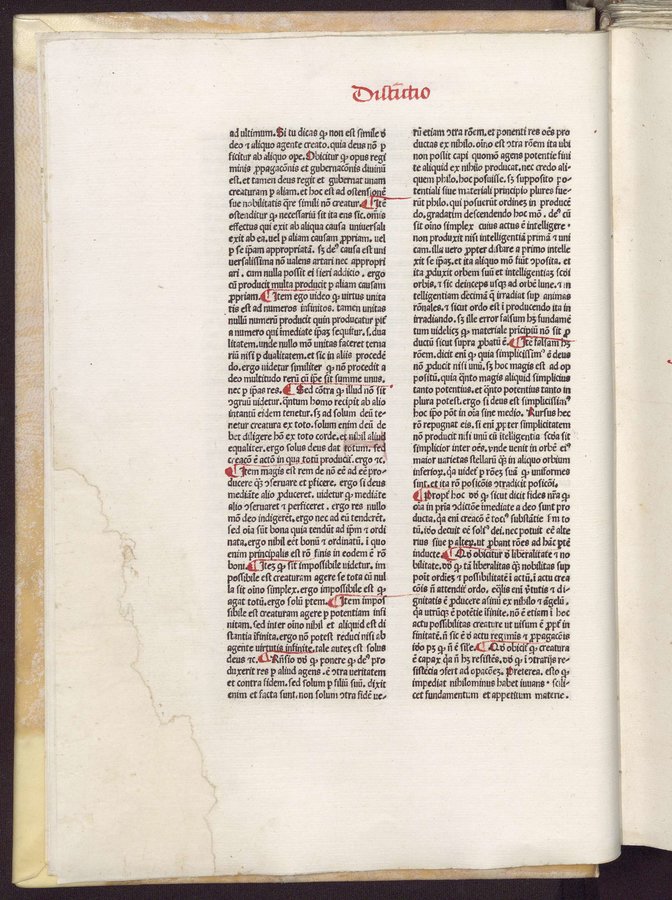 Distinctio
ad ultimum. Si tu dicas ꝙ non est simile ð
deo ⁊ aliquo agente creato. quia deus nō ꝑ
ficitur ab aliquo ope. Obicitur ꝙ opus regi
minis ꝓpagacōnis et gubernacōnis diuinū
est. et tamen deus regit et gubernat unam
creaturam ꝑ aliam. et hoc est ad ostensionē
sue nobilitatis q̄re simili nō creatur. ¶ Itē
ostenditur ꝙ necessariū sit ita ens sic. omīs
effectus qui exit ab aliqua causa uniuersali
exit ab ea. uel ꝑ aliam causam ꝓpriam. uel
ꝑ se ip̄am appropriatā. sꝫ deꝰ causa est uni
uersalissima nō ualens artari nec appropri
ari. cum nulla possit ei fieri addicio. ergo
cū producit multa producit ꝑ aliam causam
ꝓpriam. ¶ Item ego uideo ꝙ uirtus unita
tis est ad numeros infinitos. tamen unitas
nullū numerū producit quin producatur ꝑſ
a numero qui īmediate ip̄aꝫ sequitur. s. dua
litatem. unde nullo mō unitas faceret terna
riū nisi ꝑ dualitatem. et sic in aliis procedē
do. ergo uidetur similiter ꝙ nō procedit a
deo multitudo rerū cū ip̄e sit summe unus.
nec ꝑ ip̄as res. ¶ Sed cōtra ꝙ illud nō sit
ɔgruū uidetur. q̄ntum homo recipit ab alio
intantū eidem tenetur. sꝫ ad solum deū te-
netur creatura ex toto. solum enim deū de
bet diligere hō ex toto corde. et nihil aliud
equaliter. ergo solus deus dat totum. sed
creacō ē actō in qua totū producit. ergo ⁊c.
¶ Item magis est rem de nō eē ad eē pro-
ducere q̄ ɔseruare et ꝑficere. ergo si deus
mediāte alio ꝓduceret. uidetur ꝙ mediāte
alio ɔseruaret ⁊ perficeret. ergo res nullo
mō deo indigerēt. ergo nec ad eū tenderēt.
sed oīa sūt bona quia tendūt ad ip̄m ⁊ ordi
nata. ergo nihil eēt bonū ⁊ ordinatū. i quo
enim principalis est rō finis in eodem ē rō
boni. ¶ Iteꝫ ꝙ sit impossibile uidetur. im
possibile est creaturam agere se tota cū nul
la sit oīno simplex. ergo impossibile est ꝙ
agat totū. ergo solū ꝑtem. ¶ Item impos
sibile est creaturam agere ꝑ potentiam infi
nitam. sed inter oīno nihil et aliquid est di
stantia īfinita. ergo nō potest reduci nisi ab
agente uirtutis infinite. tale autē est solus
deus ⁊c. ¶ Rn̄sio ꝺ ꝙ ponere ꝙ deꝰ pro
duxerit res ꝑ aliud agens. ē ɔtra ueritatem
et contra fidem. sed solum ꝑ filiū suū. dixit
enim et facta sunt. non solum ɔtra fidē ue-
rū etiam ɔtra rōem. et ponenti res oēs pro
ductas ex nihilo. oīno est ɔtra rōem ita ubi
non possit capi quomō agens potentie fini
te aliquid ex nihilo producat. nec credo ali-
quem philo. hoc posuisse. sꝫ supposito po-
tentiali siue materiali principio plures fue-
rūt philo. qui posuerūt ordinē in producē
do. gradatim descendendo hoc mō. deꝰ cū
sit oīno simplex cuius actus ē intelligere.
non produxit nisi intelligentiā primā ⁊ uni
cam. illa uero ꝓpter distare a primo intelle
xit se ip̄aꝫ. et ita aliquo mō fuit ɔposita. et
ita ꝓduxit orbem suū et intelligentiaꝫ scd̄i
orbis. ⁊ sic deinceps usqꝫ ad orbē lune. ⁊ in
telligentiam decimā q̄ irradiat sup animas
rōnales. ⁊ sicut ordo est ī producendo ita in
irradiando. sꝫ ille error falsum hꝫ fundamē
tum uidelicꝫ ꝙ materiale principiū nō sit ꝓ
ductū sicut supra ꝓbatū ē. ¶ Itē falsam hꝫ
rōem. dicit enī ꝙ quia simplicissimꝰ ē deus
nō ꝓducit nisi unū. sꝫ hoc magis est ad op
positū. quia q̄nto magis aliquid simplicius
tanto potentius. et q̄nto potentius tanto in
plura potest. ergo si deus est simplicissimꝰ
hoc ip̄o pōt in oīa sine medio. Rursus hec
rō repugnat eis. si enī ꝓpter simplicitatem
nō producit nisi unū cū ītelligentia scd̄a sit
simplicior inter oēs. unde uenit in orbē eiꝰ
maior uarietas stellarū q̄ in aliquo orbium
inferioꝝ. q̄a uideꝉ ꝑ rōeꝫ suā ꝙ uniformes
sunt. et ita rō positiōis ɔtradicit positiōi.
¶ Propt̄ hoc ꝺ ꝙ sicut dicit fides nr̄a ꝙ
oīa in prīa ɔdictōe īmediate a deo sunt pro
ducta. q̄a enī creacō ē tociꝰ substātie ꝫm to
tū. iō decuit eē solꝰ dei. nec potuit eē alte
rius siue ꝑ alteꝝ. ut ꝓbant rōes ad hāc ꝑtē
inducte. ¶ Qꝺ obicitur ð liberalitate ⁊ no
bilitate. ꝺ ꝙ tā liberalitas q̄ nobilitas sup
poīt ordieꝫ ⁊ possibilitatē ī actū. ī actu crea
cōis ñ attendit̄ ordo. eq̄lis enī ꝟtutis ⁊ di-
gnitatis ē ꝓducere asinū ex nihilo ⁊ āgelū.
q̄a utrūqꝫ ē potētie īfinite. nō ē etiam ī hoc
actu possibilitas creature ut uisum ē ꝓpt̄ in
finitatē. ñ sic ē ð actu regimīs ⁊ ꝓpagacōis
iō ꝫ ꝙ ñ ē sīle. ¶ Qꝺ obicit̄ ꝙ creatura
ē capax q̄a ñ hꝫ resistēs. ꝺ ꝙ ī ɔtrariis re-
sistēcia ɔfert ad opacōeꝫ. Preterea. esto ꝙ
impediat nihilominus habet iuuans. scili-
cet fundamentum et appetitum materie.